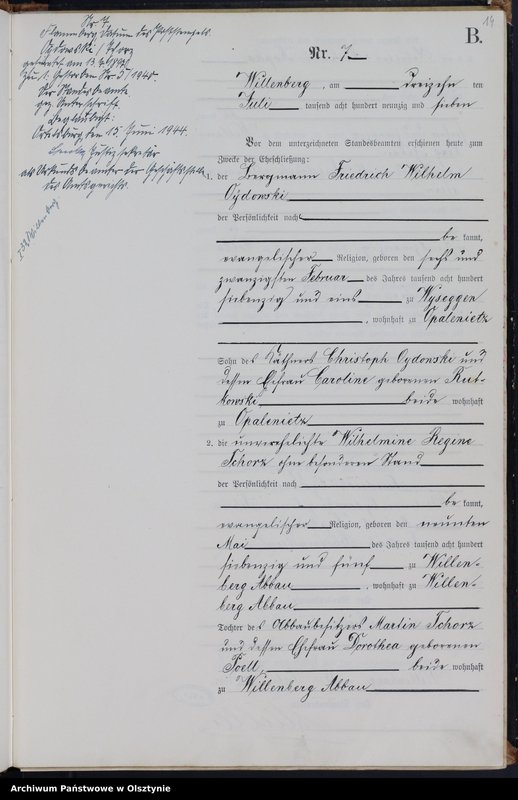 14
B.
Nr. 7
Willenberg, am dreizehn ten
Juli tausend acht hundert neunzig und sieben
Vor dem unterzeichneten Standesbeamten erschienen heute zum
Zwecke der Eheschließung:
1. der Friedrich Wilhelm
Oydonski
der Persönlichkeit nach
be kannt,
evangelischer Religion, geboren den sechs und
zwanzigsten Februar des Jahres tausend acht hundert
siebenzig und eins zu Wyseggen
, wohnhaft zu Opalenietz
Sohn des Käthners Christoph Oydonski und
dessen Ehefrau Caroline geborenen Rut-
kowski beide wohnhaft
zu Opalenietz
2. die unverehelichte Wilhelmine Regine
Schorz ohne besonderen Stand
der Persönlichkeit nach
be kannt,
evangelischer Religion, geboren den neunten
Mai des Jahres tausend acht hundert
siebenzig und fünf zu Willen-
berg Abbau, wohnhaft zu Willen-
berg Abbau
Tochter des Abbaubesitzers Martin Schorz
und dessen Ehefrau Dorothea geborenen
beide wohnhaft
zu Willenberg Abbau
Nr. 7
Datum des Poststempels.
Der Standesbeamte.
gez. Unterschrift.
Beglaubigt:
Ortelsburg, den 15. Juni 1944
Justizsekretär
als Urkundsbeamter der Geschäftsstelle
des Amtsgerichts.
Archiwum Państwowe w Olsztynie